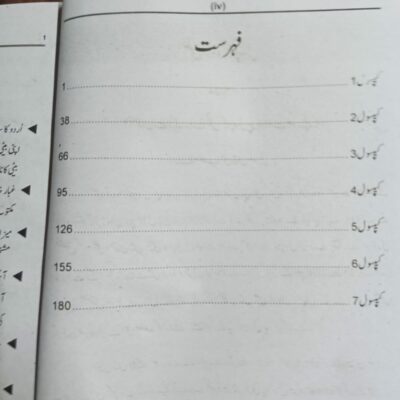 (iv)
فہرست
کیپسول 1 ........ 1
کیپسول 2 ........ 38
کیپسول 3 ........ 66
کیپسول 4 ........ 95
کیپسول 5 ........ 126
کیپسول 6 ........ 155
کیپسول 7 ........ 180
1
اُردو کا
اپنی بیٹی
غبار